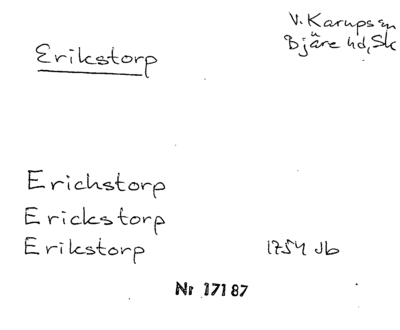 V. Karups sn
Erikstorp
Bjäre hd, Sk
Erichstorp
Erickstorp
Erikstorp 1754 Jb
Nr 17187